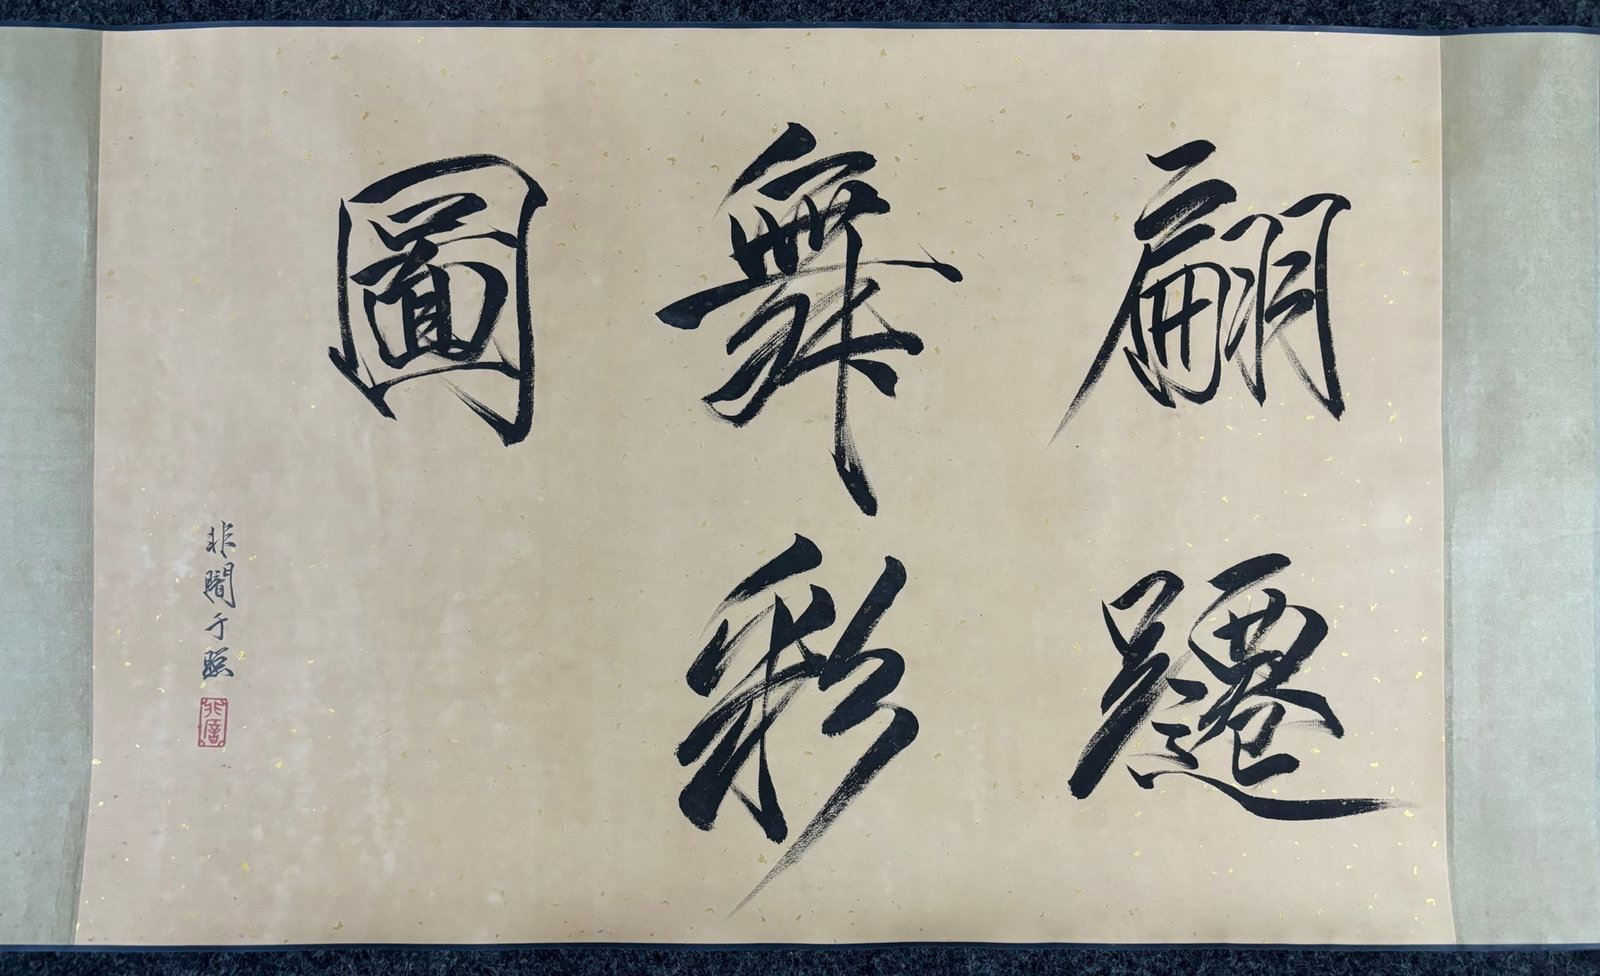 翩躚
舞彩
圖
非闇于照
非闇